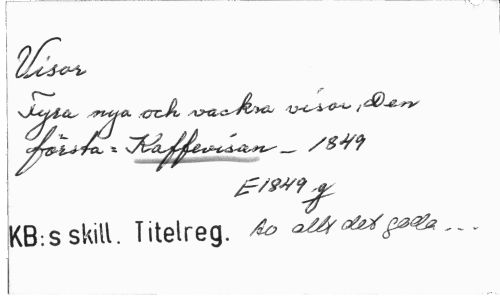 Visor
Fyra nya och vackra visor, Den
första = Kaffevisan - 1849
E1849 g
KB:s skill. Titelreg. av allt det goda...